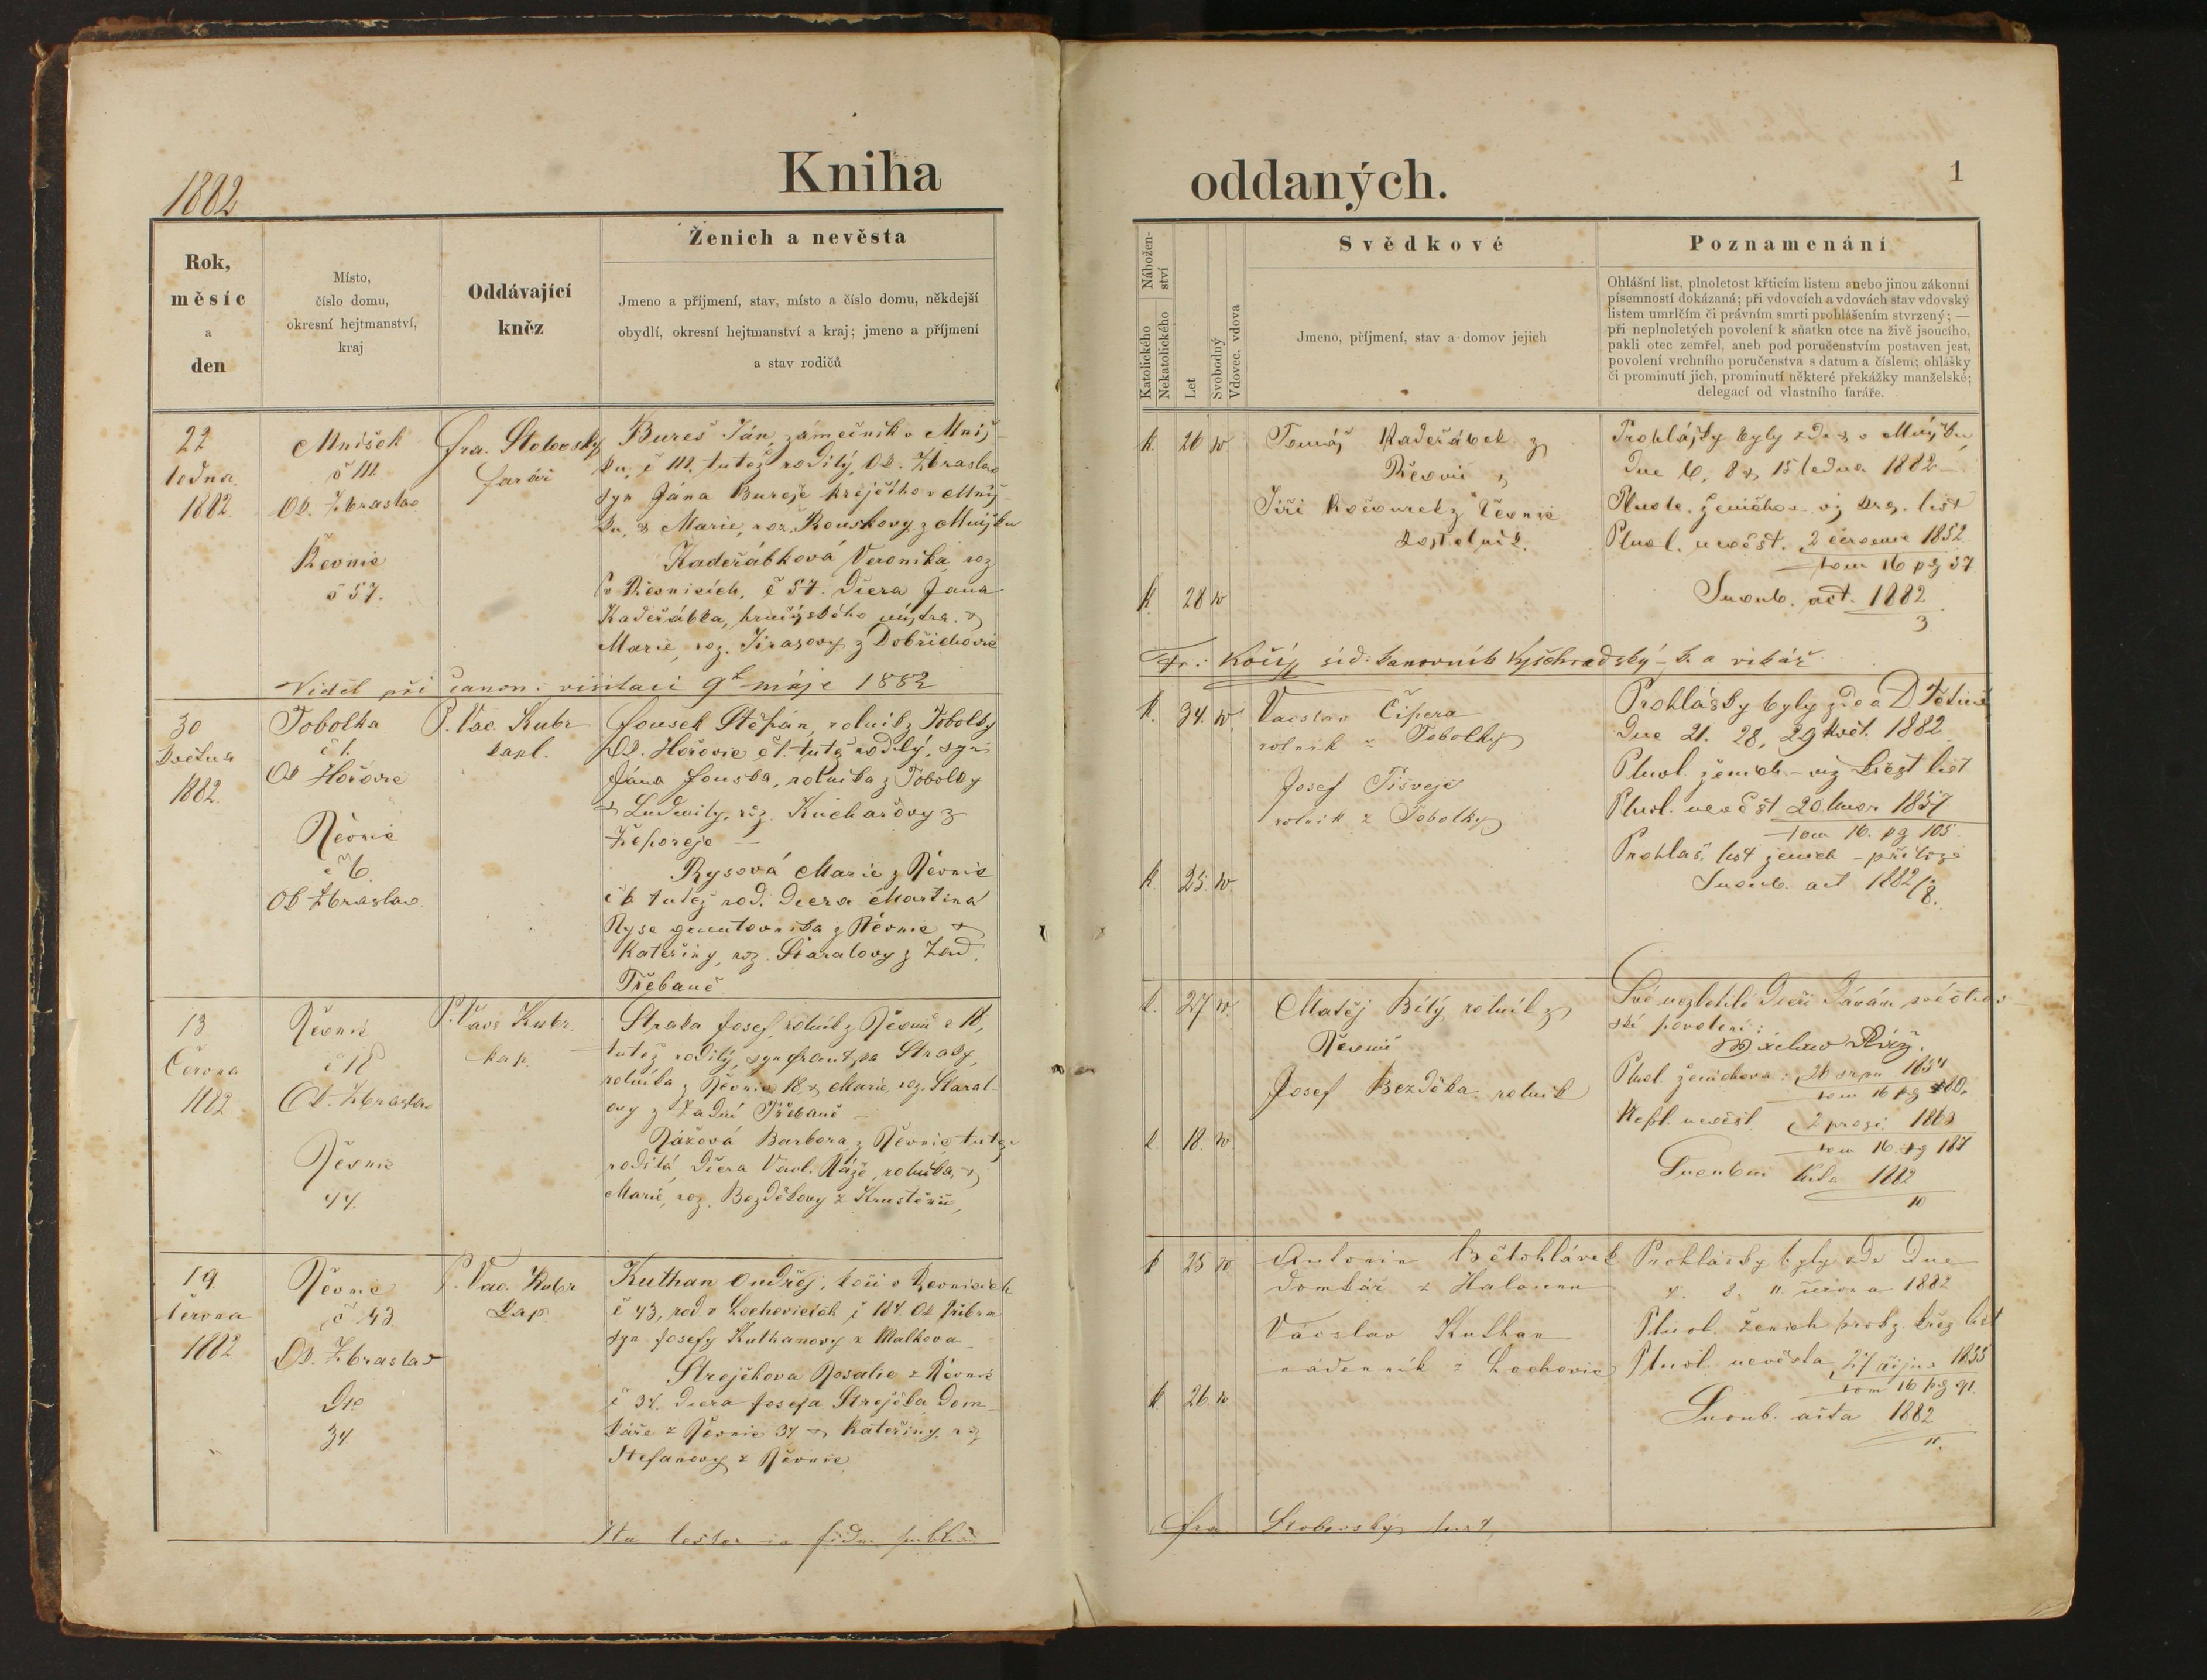 1882
Kniha
Rok,
měsíc
a
den
Místo,
číslo domu,
okresní hejtmanství,
kraj
Oddávající
kněz
Ženich a nevěsta
Jmeno a příjmení, stav, místo a číslo domu, někdejší
obydlí, okresní hejtmanství a kraj; jmeno a příjmení
a stav rodičů
22
ledna
1882.
Mníšek
č 111
Ob. Zbraslav
Řevnic
č 57.
Fra. Stolovský
farář
Bureš Ján, zámečník v Mníš-
ku, č 111. tutéž rodilý, Ob. Zbraslav
syn Jána Bureše krejčího v Mníš-
ku, & Marie, roz. Rouskovy z Mníšku
Kadeřábková Veronika, roz
v Řevnicích, č 57. dcera Jana
Kadeřábka, hrnčířského mistra &
Marie, roz. Jirasovy z Dobřichovic
Viděl při canon. visitaci 9t máje 1882
30
Května
1882.
Tobolka
č 1.
Ob Hořovic
Řevnic
č 6
Ob Zbraslav
P. Vac. Kubr
kapl.
Fousek Štěpán, rolník z Tobolky
Ob. Hořovic č 1. tutéž rodilý, syn
Jána Fouska, rolníka z Tobolky
& Ludmily, roz. Kuchařovy z
Řeporeje
Rysová Marie z Řevnic
č 6 tutéž rod. dcera Martina
Ryse gruntovníka z Řevnic &
Kateřiny, roz. Šťaralovy z Zad.
Třebaně
13
Června
1882
Řevnic
č 18
Ob. Zbraslav
Řevnic
44.
P. Vác. Kubr.
kap.
Straka Josef, rolník z Řevnic č 18,
tutéž rodilý, syn Frant.
rolníka z Řevnic 18 & Marie, roz. Šťaral-
ovy z Zadní Třebaně
Rážová Barbora z Řevnic tutéž
rodilá, dcera Václ. Ráže, rolníka, &
Marie, roz. Bezděkovy z
19.
června
1882
Řevnic
č 43
Ob. Zbraslav
Dto
34.
P. Vac. Kubr
Kap.
Kuthan Ondřej, kočí v Řevnicích
č 43, rod. v Lochovicích č 184. Ob Příbram
syn Josefy Kuthanovy z Malkova
Strejčkova Rosalie z Řevnic
č 34. dcera Josefa Strejčka Dom-
káře z Řevnic 34 & Kateřiny, roz
Štefanovy z Řevnic
Ita testor in fidem publicam
oddaných.
1
Nábožen-
ství
Katolického
Nekatolického
Let
Svobodný
Vdovec, vdova
Svědkové
Jmeno, příjmení, stav a domov jejich
Poznamenání
Ohlášní list, plnoletost křticím listem anebo jinou zákonní
písemností dokázaná; při vdovcích a vdovách stav vdovský
listem umrlčím či právním smrti prohlášením stvrzený; —
při neplnoletých povolení k sňatku otce na živě jsoucího,
pakli otec zemřel, aneb pod poručenstvím postaven jest,
povolení vrchního poručenstva s datum a číslem; ohlášky
či prominutí jich, prominutí některé překážky manželské;
delegací od vlastního faráře.
K.
26
Tomáš Kadeřábek z
Řevnic &
Jiří Kocourek z Řevnic
kostelník.
Prohlášky byly zde & v Mníšku,
dne 6. 8 & 15 ledna 1882
Plnole. ženichov. viz křes. list
Plnol. nevěst. 2 července 1852
tom 16 pg 37
Snoub. act. 1882
3
K.
28
Fr. Kočí síd: kanovník Vyšehradský a vikář
K.
34.
Vacslav Čipera
rolník z Tobolky
Josef Tišvejč
rolník z Tobolky
Prohlášky byly zde a D Tětíně
Dne 21. 28, 29 Květ. 1882
Plnol. ženich. — viz křest list
Plnol. nevěst 20 únor 1857
tom 16. pg 105.
Prohláš. list ženich — příloze
Snoub. act 1882/8.
K.
25.
k.
27
Matěj Bílý rolník z
Řevnic
Josef Bezděka rolník
Své nezletilé dceři dávám své otcov-
ské povolení:
Plnol. ženichova: 26 srpn 1854
tom 16 pg
Nepl. nevěst. 2 pros. 1863
tom 16. pg 187
Snoubní Akta 1882
10
k
18.
k
25
Antonin Bělohlávek
Domkář z Halounn
Václav Kuthan
nádenník z Lochovic
Prohlášky byly zde dne
4. 8. 11 června 1882
Plnol. ženich křes list
Plnol. nevěsta 27 října 1855
tom 16 pg 91.
Snoub. akta 1882
11.
K
26.
Fra Stolovský farář